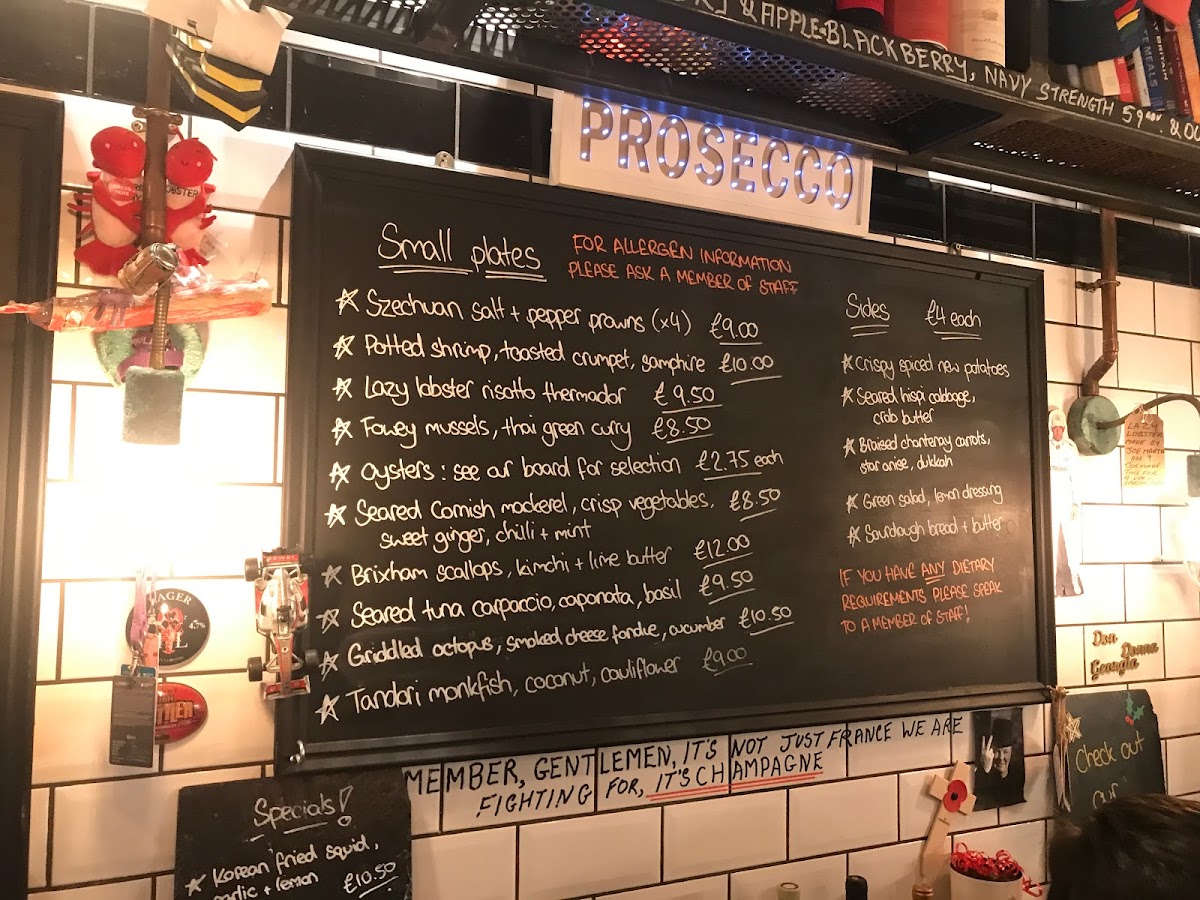 & APPLE • BLACKBERRY, NAVY STRENGTH 59
PROSECCO
Small plates
FOR ALLERGEN INFORMATION
PLEASE ASK A MEMBER OF STAFF
Szechuan salt + pepper prawns (x4) £9.00
Potted shrimp, toasted crumpet, samphire £10.00
Lazy lobster risotto thermador £9.50
Fowey mussels, thai green curry £8.50
Oysters : see our board for selection £2.75 each
Seared Cornish mackerel, crisp vegetables, £8.50
sweet ginger, chilli + mint
Brixham scallops, kimchi + lime butter £12.00
Seared tuna carpaccio, caponata, basil £9.50
Griddled octopus, smoked cheese fondue, cucumber £10.50
Tandori monkfish, coconut, cauliflower £9.00
Sides £4 each
Crispy spiced new potatoes
Seared hispi cabbage,
crab butter
Braised chantenay carrots,
star anise, dukkah
Green salad, lemon dressing
Sourdough bread + butter
IF YOU HAVE ANY DIETARY
REQUIREMENTS PLEASE SPEAK
TO A MEMBER OF STAFF!
MEMBER, GENTLEMEN, IT'S NOT JUST FRANCE WE ARE
FIGHTING FOR, IT'S CHAMPAGNE
Specials!
Korean fried squid,
garlic + lemon £10.50
LOBSTER
AGER
4.7%
LAZY
LOBSTER
MADE BY
JOE
Don
Donna
Georgia
Check out
our